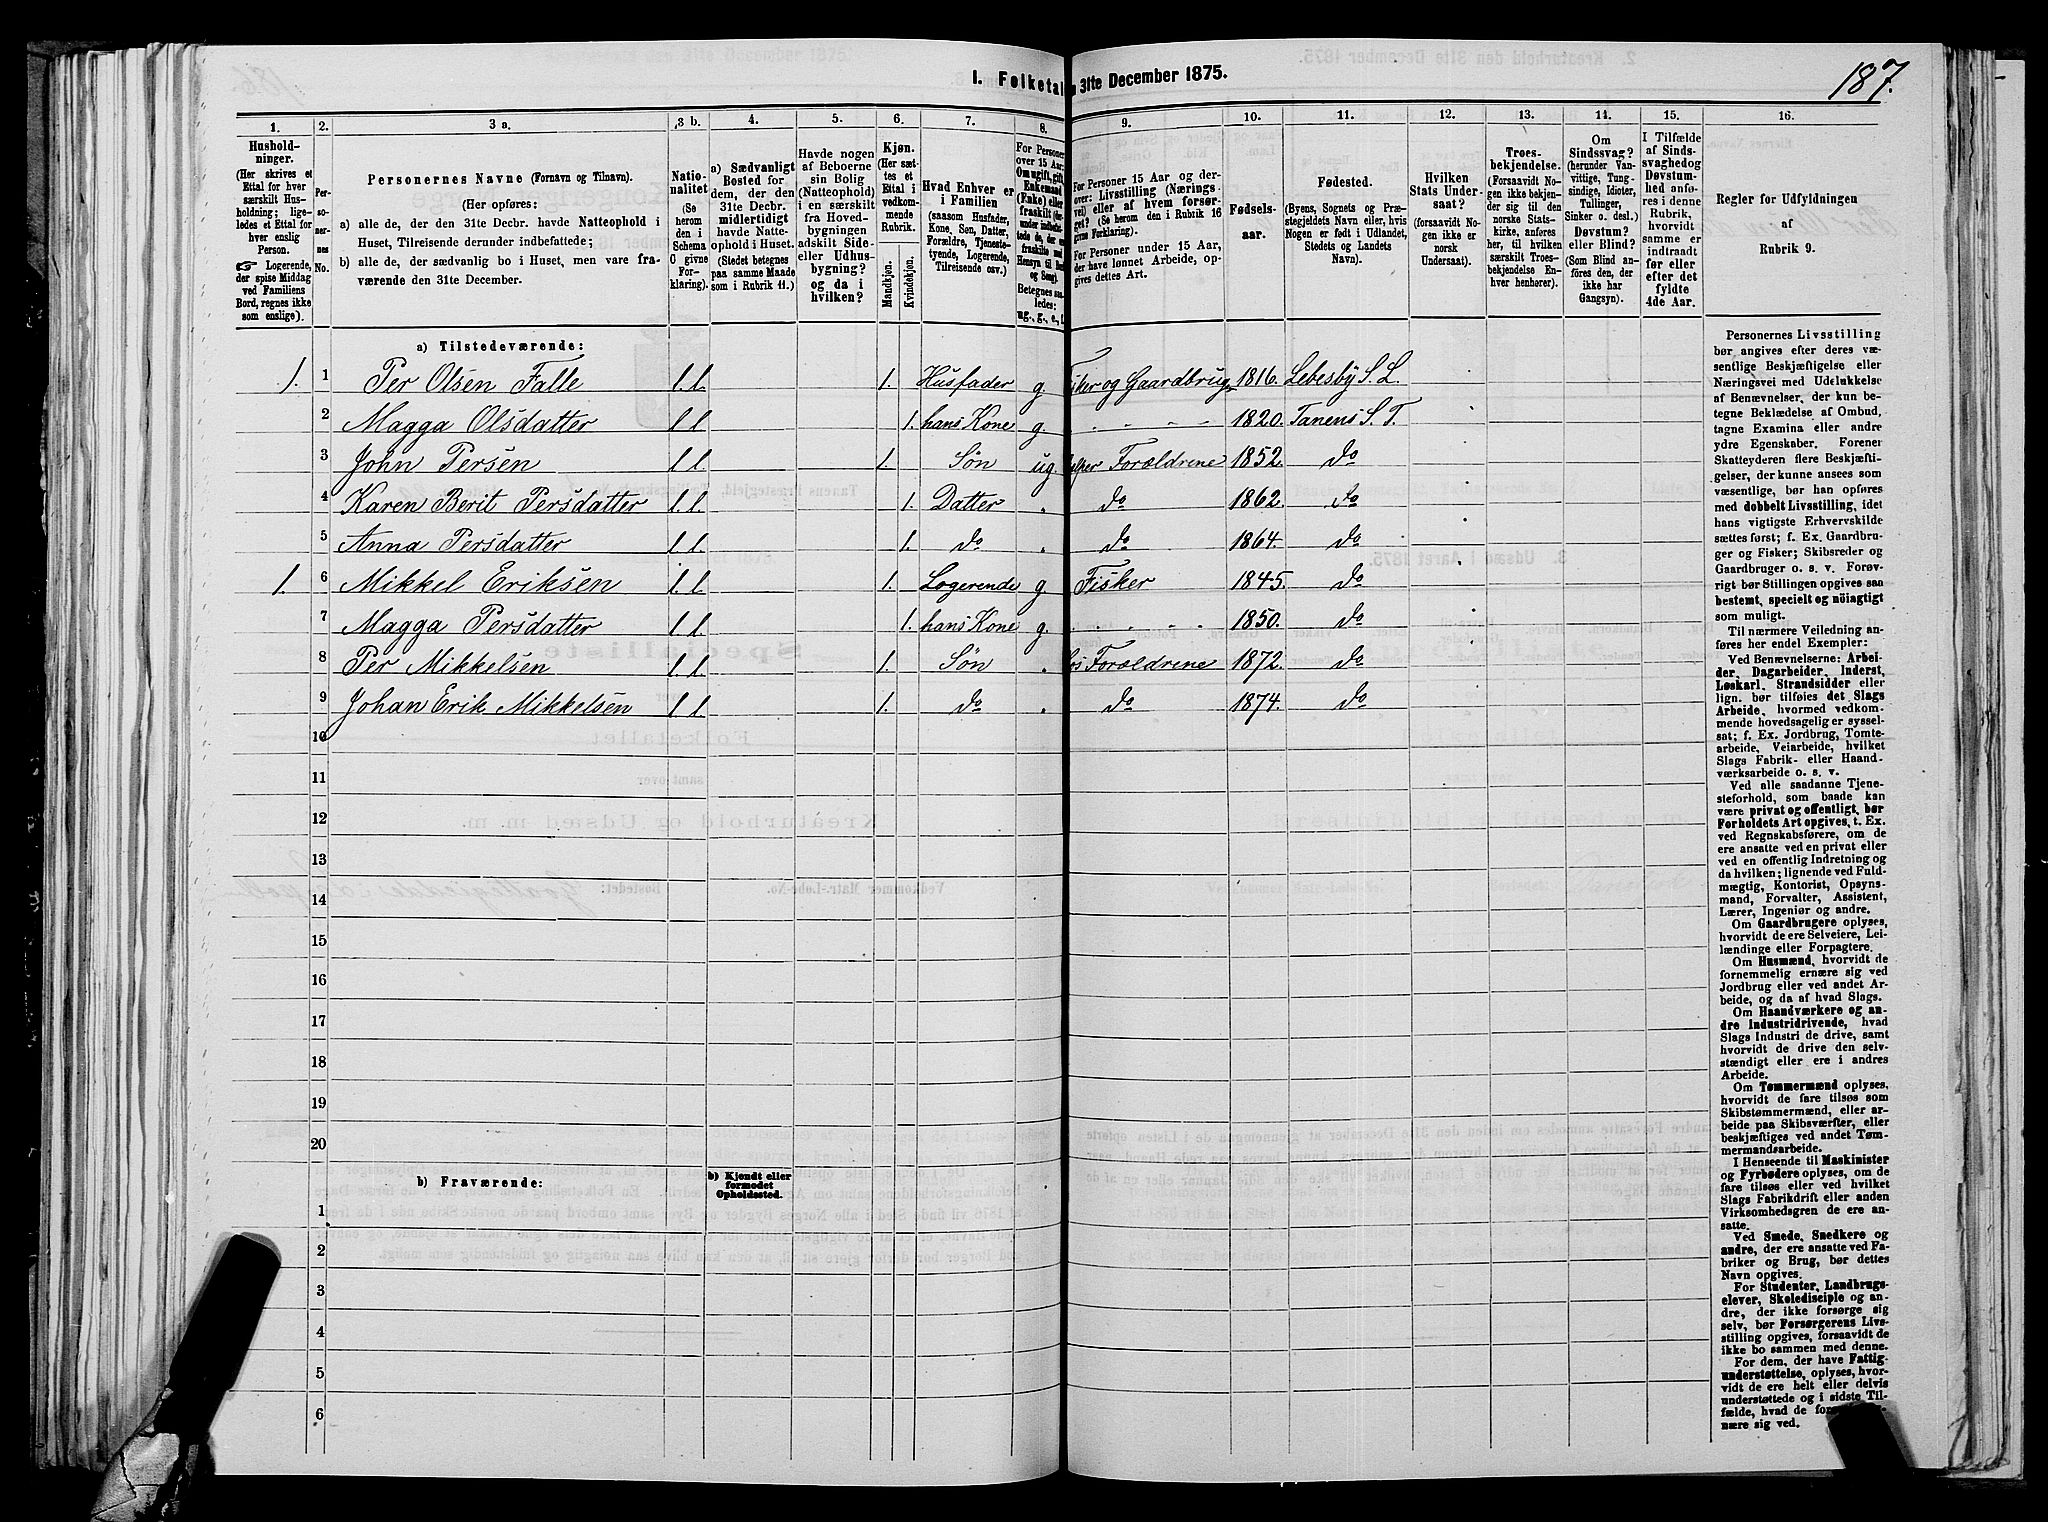 187.
I. Folketal
n 31te December 1875.
1. 2. 3 a. 3 b. 4. 5. 6. 7. 8. 9. 10. 11. 12. 13. 14. 15. 16.
Hushold-
ninger.
(Her skrives et
Ettal for hver
særskilt Hus-
holdning; lige-
ledes et Ettal for
hver enslig
Person.
☞ Logerende,
der spise Middag
ved Familiens
Bord, regnes ikke
som enslige).
Per-
so-
ner-
nes
No.
Personernes Navne (Fornavn og Tilnavn).
(Her opføres:
a) alle de, der den 31te Decbr. havde Natteophold i
Huset, Tilreisende derunder indbefattede;
b) alle de, der sædvanlig bo i Huset, men vare fra-
værende den 31te December.
Natio-
nalitet
(Se
herom
den i
Schema
G givne
For-
klaring).
a) Sædvanligt
Bosted for
dem, der den
31te Decbr.
midlertidigt
havde Natte-
ophold i Huset.
(Stedet betegnes
paa samme Maade
som i Rubrik 11.)
Havde nogen
af Beboerne
sin Bolig
(Natteophold)
i en særskilt
fra Hoved-
bygningen
adskilt Side-
eller Udhus-
bygning?
og da i
hvilken?
Kjøn.
(Her sæt-
tes et
Ettal i
vedkom-
mende
Rubrik.
Mandkjøn.
Kvindekjøn.
Hvad Enhver er
i Familien
(saasom Husfader,
Kone, Søn, Datter,
Forældre, Tjeneste-
tyende, Logerende,
Tilreisende osv.)
For Personer
over 15 Aar:
Om ugift, gift,
Enkemand
(Enke) eller
fraskilt
Betegnes saa-
ledes:
ug., g., e.,
For Personer 15 Aar og der-
over: Livsstilling (Nærings-
vei) eller af hvem forsør-
get? (Se herom den i Rubrik 16
givne Forklaring).
For Personer under 15 Aar,
der have lønnet Arbeide, op-
gives dettes Art.
Fødsels-
aar.
Fødested.
(Byens, Sognets og Præ-
stegjeldets Navn eller, hvis
Nogen er født i Udlandet,
Stedets og Landets
Navn).
Hvilken
Stats Under-
saat?
(forsaavidt No-
gen ikke er
norsk
Undersaat).
Troes-
bekjendelse.
(Forsaavidt No-
gen ikke bekjen-
der sig til den
norske Stats-
kirke, anføres
her, til hvilken
særskilt Troes-
bekjendelse En-
hver henhører).
Om
Sindssvag?
(herunder Van-
vittige, Tung-
sindige, Idioter,
Tullinger,
Sinker o. desl.)
Døvstum?
eller Blind?
(Som Blind an-
føres den, der
ikke har
Gangsyn).
I Tilfælde
af Sinds-
svaghed og
Døvstum-
hed anfø-
res i denne
Rubrik,
hvorvidt
samme er
indtraadt
før eller
efter det
fyldte
4de Aar.
Regler for Udfyldningen
af
Rubrik 9.
a) Tilstedeværende:
1. 1 Per Olsen Falle l.l. 1. Husfader g. Fisker og Gaardbrug 1816. Lebesby S. L.
2 Magga Olsdatter l.l. 1. hans Kone g. - - - - 1820. Tanens S. T.
3 John Persen l.l. 1. Søn ug. Forældrene 1852. do
4 Karen Berit Persdatter l.l. 1. Datter . do 1862. do
5 Anna Persdatter l.l. 1. do . do 1864. do
1. 6 Mikkel Eriksen l.l. 1. Logerende g. Fisker 1845. do
7 Magga Persdatter l.l. 1. hans Kone g. - - - - 1850. do
8 Per Mikkelsen l.l. 1. Søn . Forældrene 1872. do
9 Johan Erik Mikkelsen l.l. 1. do . do 1874. do
10
11
12
13
14
15
16
17
18
19
20
b) Fraværende:
b) Kjendt eller
formodet
Opholdssted.
1
2
3
4
5
6
Personernes Livsstilling
bør angives efter deres væ-
sentlige Beskjæftigelse eller
Næringsvei med Udelukkelse
af Benævnelser, der kun be-
tegne Beklædelse af Ombud,
tagne Examina eller andre
ydre Egenskaber. Forener
Skatteyderen flere Beskjæfti-
gelser, der kunne ansees som
væsentlige, bør han opføres
med dobbelt Livsstilling, idet
hans vigtigste Erhvervskilde
sættes først; f. Ex. Gaardbru-
ger og Fisker; Skibsreder og
Gaardbruger o. s. v. Forøv-
rigt bør Stillingen opgives saa
bestemt, specielt og nøiagtigt
som muligt.
Til nærmere Veiledning an-
føres her endel Exempler:
Ved Benævnelserne: Arbei-
der, Dagarbeider, Inderst,
Løskarl, Strandsidder eller
lign. bør tilføies det Slags
Arbeide, hvormed vedkom-
mende hovedsagelig er syssel-
sat; f. Ex. Jordbrug, Tomte-
arbeide, Veiarbeide, hvilket
Slags Fabrik- eller Haand-
værksarbeide o. s. v.
Ved alle saadanne Tjene-
steforhold, som baade kan
være privat og offentligt, bør
Forholdets Art opgives, t. Ex.
ved Regnskabsførere, om de
ere ansatte ved en privat eller
ved en offentlig Indretning og
da hvilken; lignende ved Fuld-
mægtig, Kontorist, Opsyns-
mand, Forvalter, Assistent,
Lærer, Ingeniør og andre.
Om Gaardbrugere oplyses,
hvorvidt de ere Selveiere, Lei-
lændinge eller Forpagtere.
Om Husmænd, hvorvidt de
fornemmelig ernære sig ved
Jordbrug eller ved andet Ar-
beide, og da af hvad Slags.
Om Haandværkere og an-
dre Industridrivende, hvad
Slags Industri de drive, samt
hvorvidt de drive den selv-
stændigt eller ere i andres
Arbeide.
Om Tømmermænd oplyses,
hvorvidt de fare tilsøs som
Skibstømmermænd, eller ar-
beide paa Skibsværfter, eller
beskjæftiges ved andet Tøm-
mermandsarbeide.
I Henseende til Maskinister
og Fyrbødere oplyses, om de
fare tilsøs eller ved hvilket
Slags Fabrikdrift eller anden
Virksomhedsgren de ere an-
satte.
Ved Smede, Snedkere og
andre, der ere ansatte ved Fa-
briker og Brug, bør dettes
Navn opgives.
For Studenter, Landbrugs-
elever, Skoledisciple og an-
dre, der ikke forsørge sig
selv, bør Forsørgerens Livs-
stilling opgives, forsaavidt de
ikke bo sammen med denne.
For dem, der have Fattig-
understøttelse, oplyses, hvor-
vidt de ere helt eller delvis
understøttede og i sidste Til-
fælde, hvad de
nære sig ved.